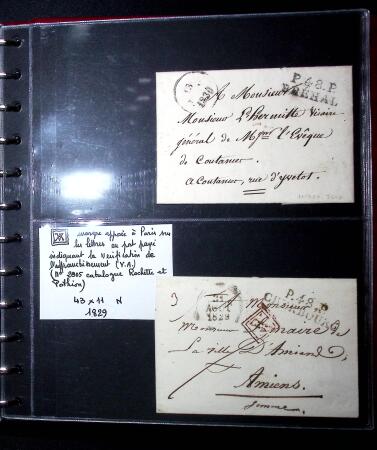 13
1830
P.48.P.
BREHAL
A Monsieur
Monsieur L'hermitte Vicaire
général de Mgr l'Evêque
de Coutances
a Coutances, rue d'yvetot.
marque apposée à Paris sur
les lettres en port payé
indiquant la vérification de
l'affranchissement (V.A.)
(N° 2805 catalogue Rochette et
Pothion)
43 x 11 N
1829
3
21
1829
P.48.P
CHERBOURG
Monsieur
Monsieur Le maire de
La ville D'Amiens,
Amiens.
Somme.